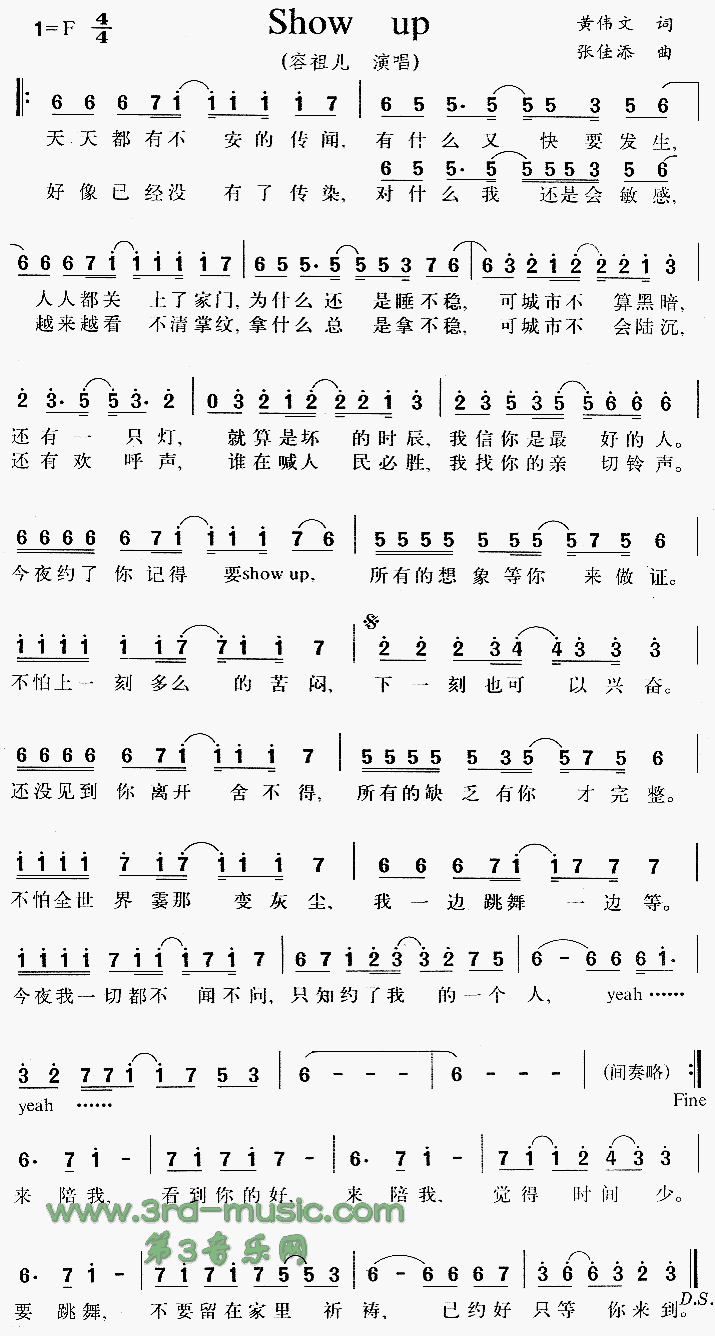 Show up
1=F 4/4
黄伟文 词
(容祖儿 演唱)
张佳添 曲
6 6 6 7 i i i i 1 7 6 5 5· 5 5 5 3 5 6
天天都有不 安的传闻, 有什么又 快要发生,
6 5 5· 5 5 5 5 3 5 6
好像已经没 有了传染, 对什么我 还是会敏感,
6 6 6 7 i i i i 1 7 6 5 5· 5 5 5 3 7 6 6 3 2 1 2 2 2 1 3
人人都关 上了家门, 为什么还 是睡不稳, 可城市不 算黑暗,
越来越看 不清掌纹, 拿什么总 是拿不稳, 可城市不 会陆沉,
2 3· 5 5 3· 2 0 3 2 1 2 2 2 1 3 2 3 5 3 5 5 6 6 6
还有一 只灯, 就算是坏 的时辰, 我信你是最 好的人。
还有欢 呼声, 谁在喊人 民必胜, 我找你的亲 切铃声。
6 6 6 6 6 7 i i i i 7 6 5 5 5 5 5 5 5 5 7 5 6
今夜约了 你记得 要show up, 所有的想象等你 来做证。
i i i i i i 7 7 i i 7 2 2 2 3 4 4 3 3 3
不怕上一刻多么 的苦闷, 下一刻也可 以兴奋。
6 6 6 6 6 7 i i i i 7 5 5 5 5 5 3 5 5 7 5 6
还没见到 你离开 舍不得, 所有的缺乏有你 才完整。
i i i i 7 i 7 i i i 7 6 6 6 7 i i 7 7 7
不怕全世界霎那 变灰尘, 我一边跳舞 一边等。
i i i i 7 i i i 7 i 7 6 7 i 2 3 3 2 7 5 6 - 6 6 6 i·
今夜我一切都不 闻不问, 只知约了我 的一个人, yeah……
3 2 7 7 i i 7 5 3 6 - - - 6 - - - (间奏略)
yeah …… Fine
6· 7 i - 7 i 7 i 7 - 6· 7 i - 7 i i 2 4 3
来 陪我, 看到你的好, 来 陪我, 觉得 时间 少。
www.3rd-music.com
第3音乐网
6· 7 i - 7 i 7 i 7 5 5 3 6 - 6 6 6 7 3 6 6 3 2 3
要 跳舞, 不要留在家里 祈祷, 已约好 只等 你来到。
D.S.